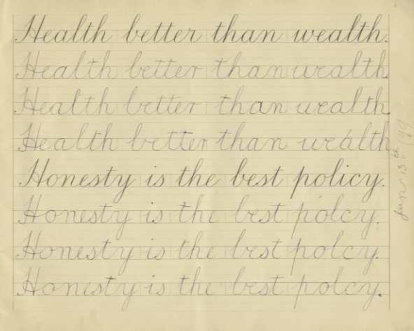 Health better than wealth.
Health better than wealth
Health better than wealth
Health better than wealth
Honesty is the best policy.
Honesty is the best polcy.
Honesty is the best polcy.
Honesty is the best polcy.